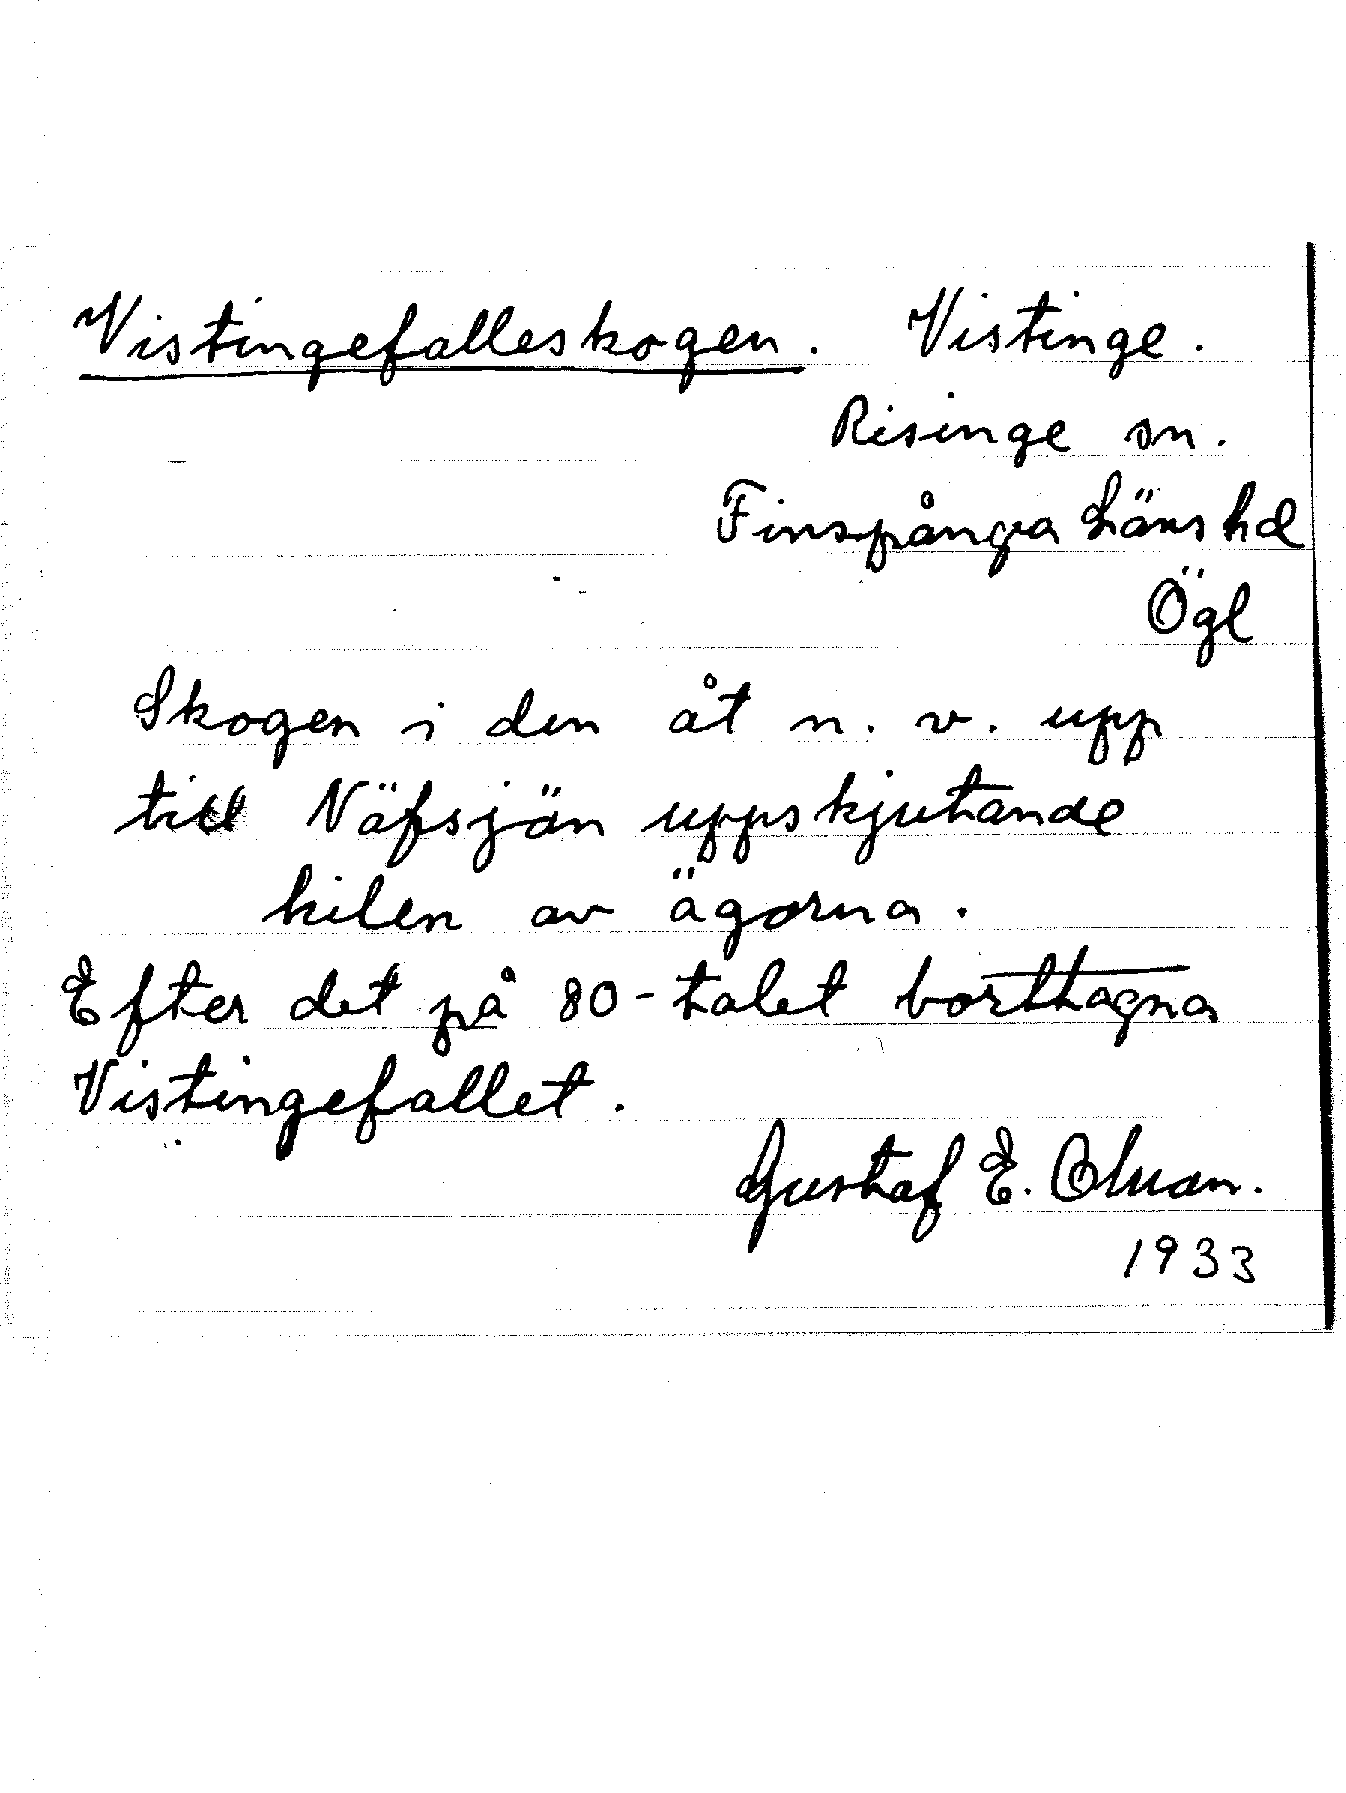 Vistingefalleskogen. Vistinge.
Risinge sn.
Finspånga Läns hd
Ögl
Skogen i den åt n. v. upp
till Näfsjön uppskjutande
kilen av ägorna.
Efter det på 80-talet borttagna
Vistingefallet.
Gustaf E.
1933